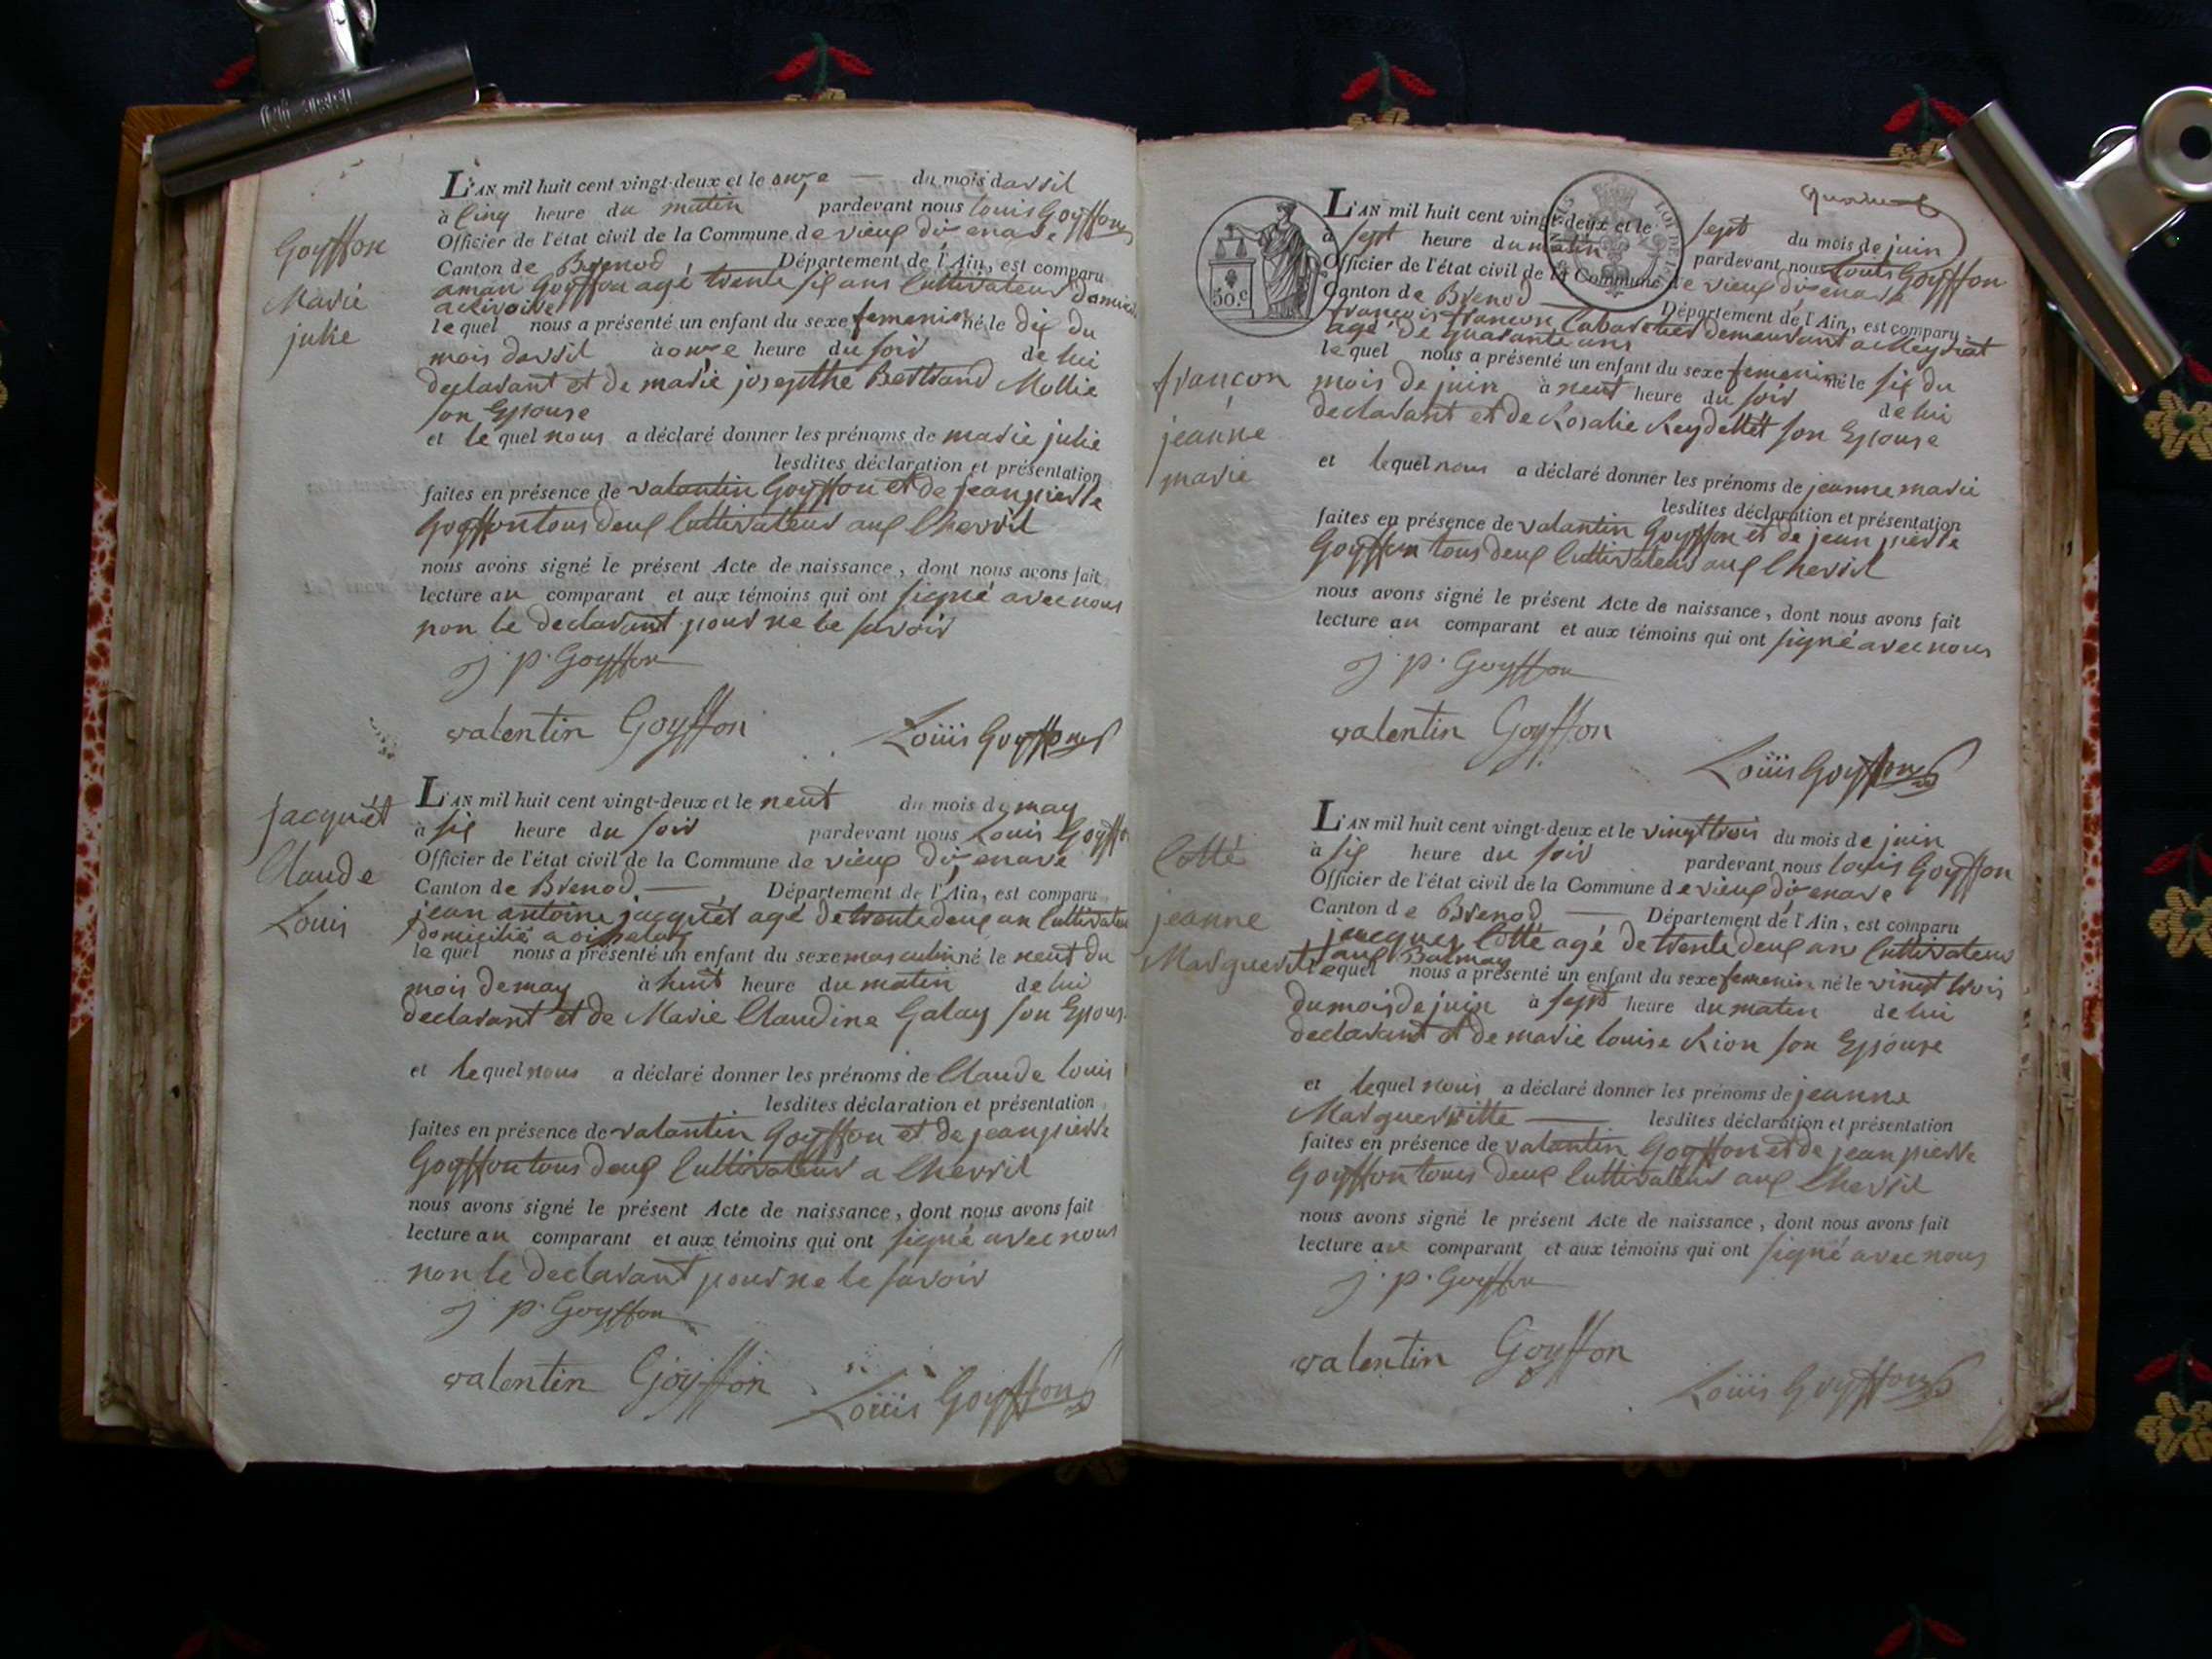 L'AN mil huit cent vingt-deux et le onze du mois davril
à Cinq heure du matin pardevant nous Louis Goyffon
Officier de l'état civil de la Commune de vieux diz enave
Canton de Brenod, Département de l'Ain, est comparu
aman Goyffon agé trente six ans Cultivateur
Goyffon
Marie
julie
le quel nous a présenté un enfant du sexe femenin né le dix du
mois davril à onze heure du soir de lui
declarant et de marie josepthe Bertrand Mollie
son Epouse
et le quel nous a déclaré donner les prénoms de marie julie
lesdites déclaration et présentation
faites en présence de valantin Goyffon et de jean pierre
Goyffon tous deux Cultivateur aux Chevril
nous avons signé le présent Acte de naissance, dont nous avons fait
lecture au comparant et aux témoins qui ont signé avec nous
non le declarant pour ne le savoir
j. p. Goyffon
valentin Goyffon
Loüis Goyffon
Jacquét
Claude
Louis
L'AN mil huit cent vingt-deux et le neuf du mois de may
à six heure du soir pardevant nous Louis Goyffon
Officier de l'état civil de la Commune de vieux diz enave
Canton de Brenod, Département de l'Ain, est comparu
jean antoine jacquét agé de trente deux an Cultivateur
domicilié a
le quel nous a présenté un enfant du sexe masculin né le neuf du
mois de may à huit heure du matin de lui
declarant et de Marie Claudine Galay son Epouse
et le quel nous a déclaré donner les prénoms de Claude Louis
lesdites déclaration et présentation
faites en présence de valantin Goyffon et de jean pierre
Goyffon tous deux Cultivateur a Chevril
nous avons signé le présent Acte de naissance, dont nous avons fait
lecture au comparant et aux témoins qui ont signé avec nous
non le declarant pour ne le savoir
j. p. Goyffon
valentin Goyffon
Loüis Goyffon
50.c
L'AN mil huit cent vingt-deux et le sept du mois de juin
à sept heure du matin pardevant nous Louis Goyffon
Officier de l'état civil de la Commune de vieux diz enave
Canton de Brenod Département de l'Ain, est comparu
françois françon Cabaretier demeurant a Meyriat
agé de quarante ans
françon
jeanne
marie
le quel nous a présenté un enfant du sexe femenin né le six du
mois de juin à neuf heure du soir de lui
declarant et de Rosalie Reydellét son Epouse
et lequel nous a déclaré donner les prénoms de jeanne marie
lesdites déclaration et présentation
faites en présence de valantin Goyffon et de jean pierre
Goyffon tous deux Cultivateur aux Chevril
nous avons signé le présent Acte de naissance, dont nous avons fait
lecture au comparant et aux témoins qui ont signé avec nous
j. p. Goyffon
valentin Goyffon
Loüis Goyffon
Cotté
jeanne
Marguerite
L'AN mil huit cent vingt-deux et le vingt trois du mois de juin
à six heure du soir pardevant nous Louis Goyffon
Officier de l'état civil de la Commune de vieux diz enave
Canton de Brenod Département de l'Ain, est comparu
jacques Cotté agé de trente deux an Cultivateur
aux Balmay
lequel nous a présenté un enfant du sexe femenin né le vingt trois
du mois de juin à sept heure du matin de lui
declarant et de marie Louise Rion son Epouse
et lequel nous a déclaré donner les prénoms de jeanne
Margueritte lesdites déclaration et présentation
faites en présence de valantin Goyffon et de jean pierre
Goyffon tous deux Cultivateur aux Chevril
nous avons signé le présent Acte de naissance, dont nous avons fait
lecture au comparant et aux témoins qui ont signé avec nous
j. p. Goyffon
valentin Goyffon
Loüis Goyffon